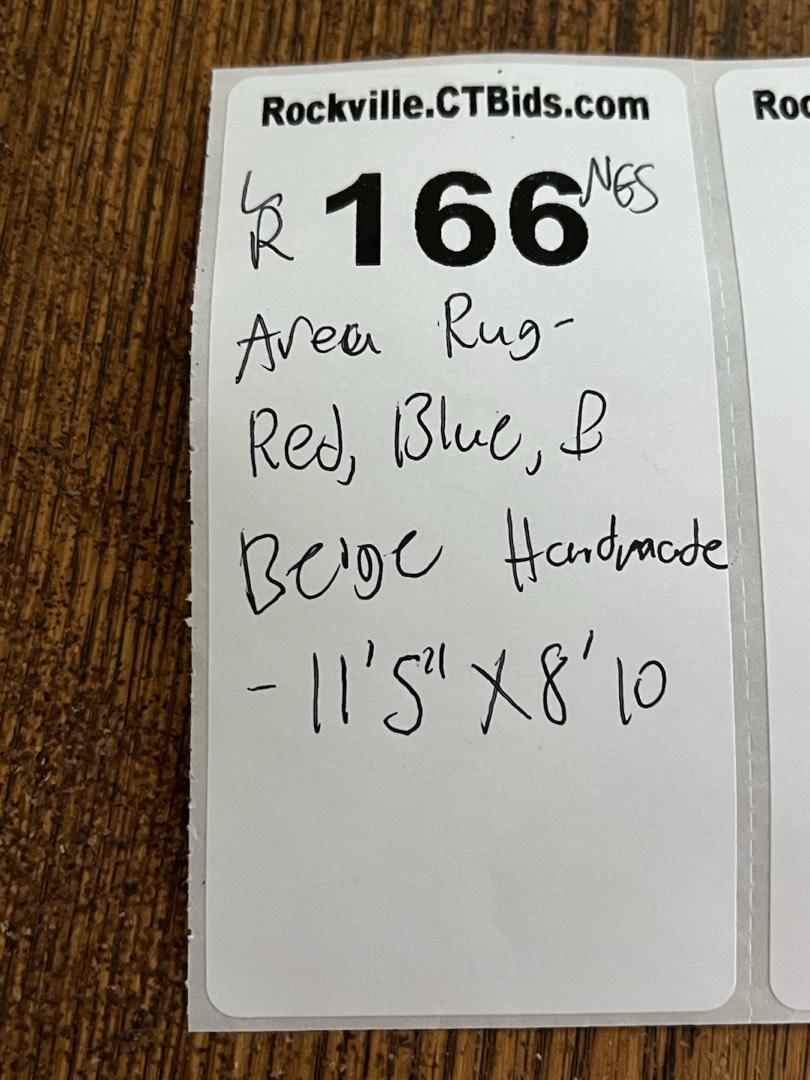 Rockville.CTBids.com
Roc
LR 166 NGS
Area Rug-
Red, Blue, &
Beige Handmade
- 11'5" X 8'10